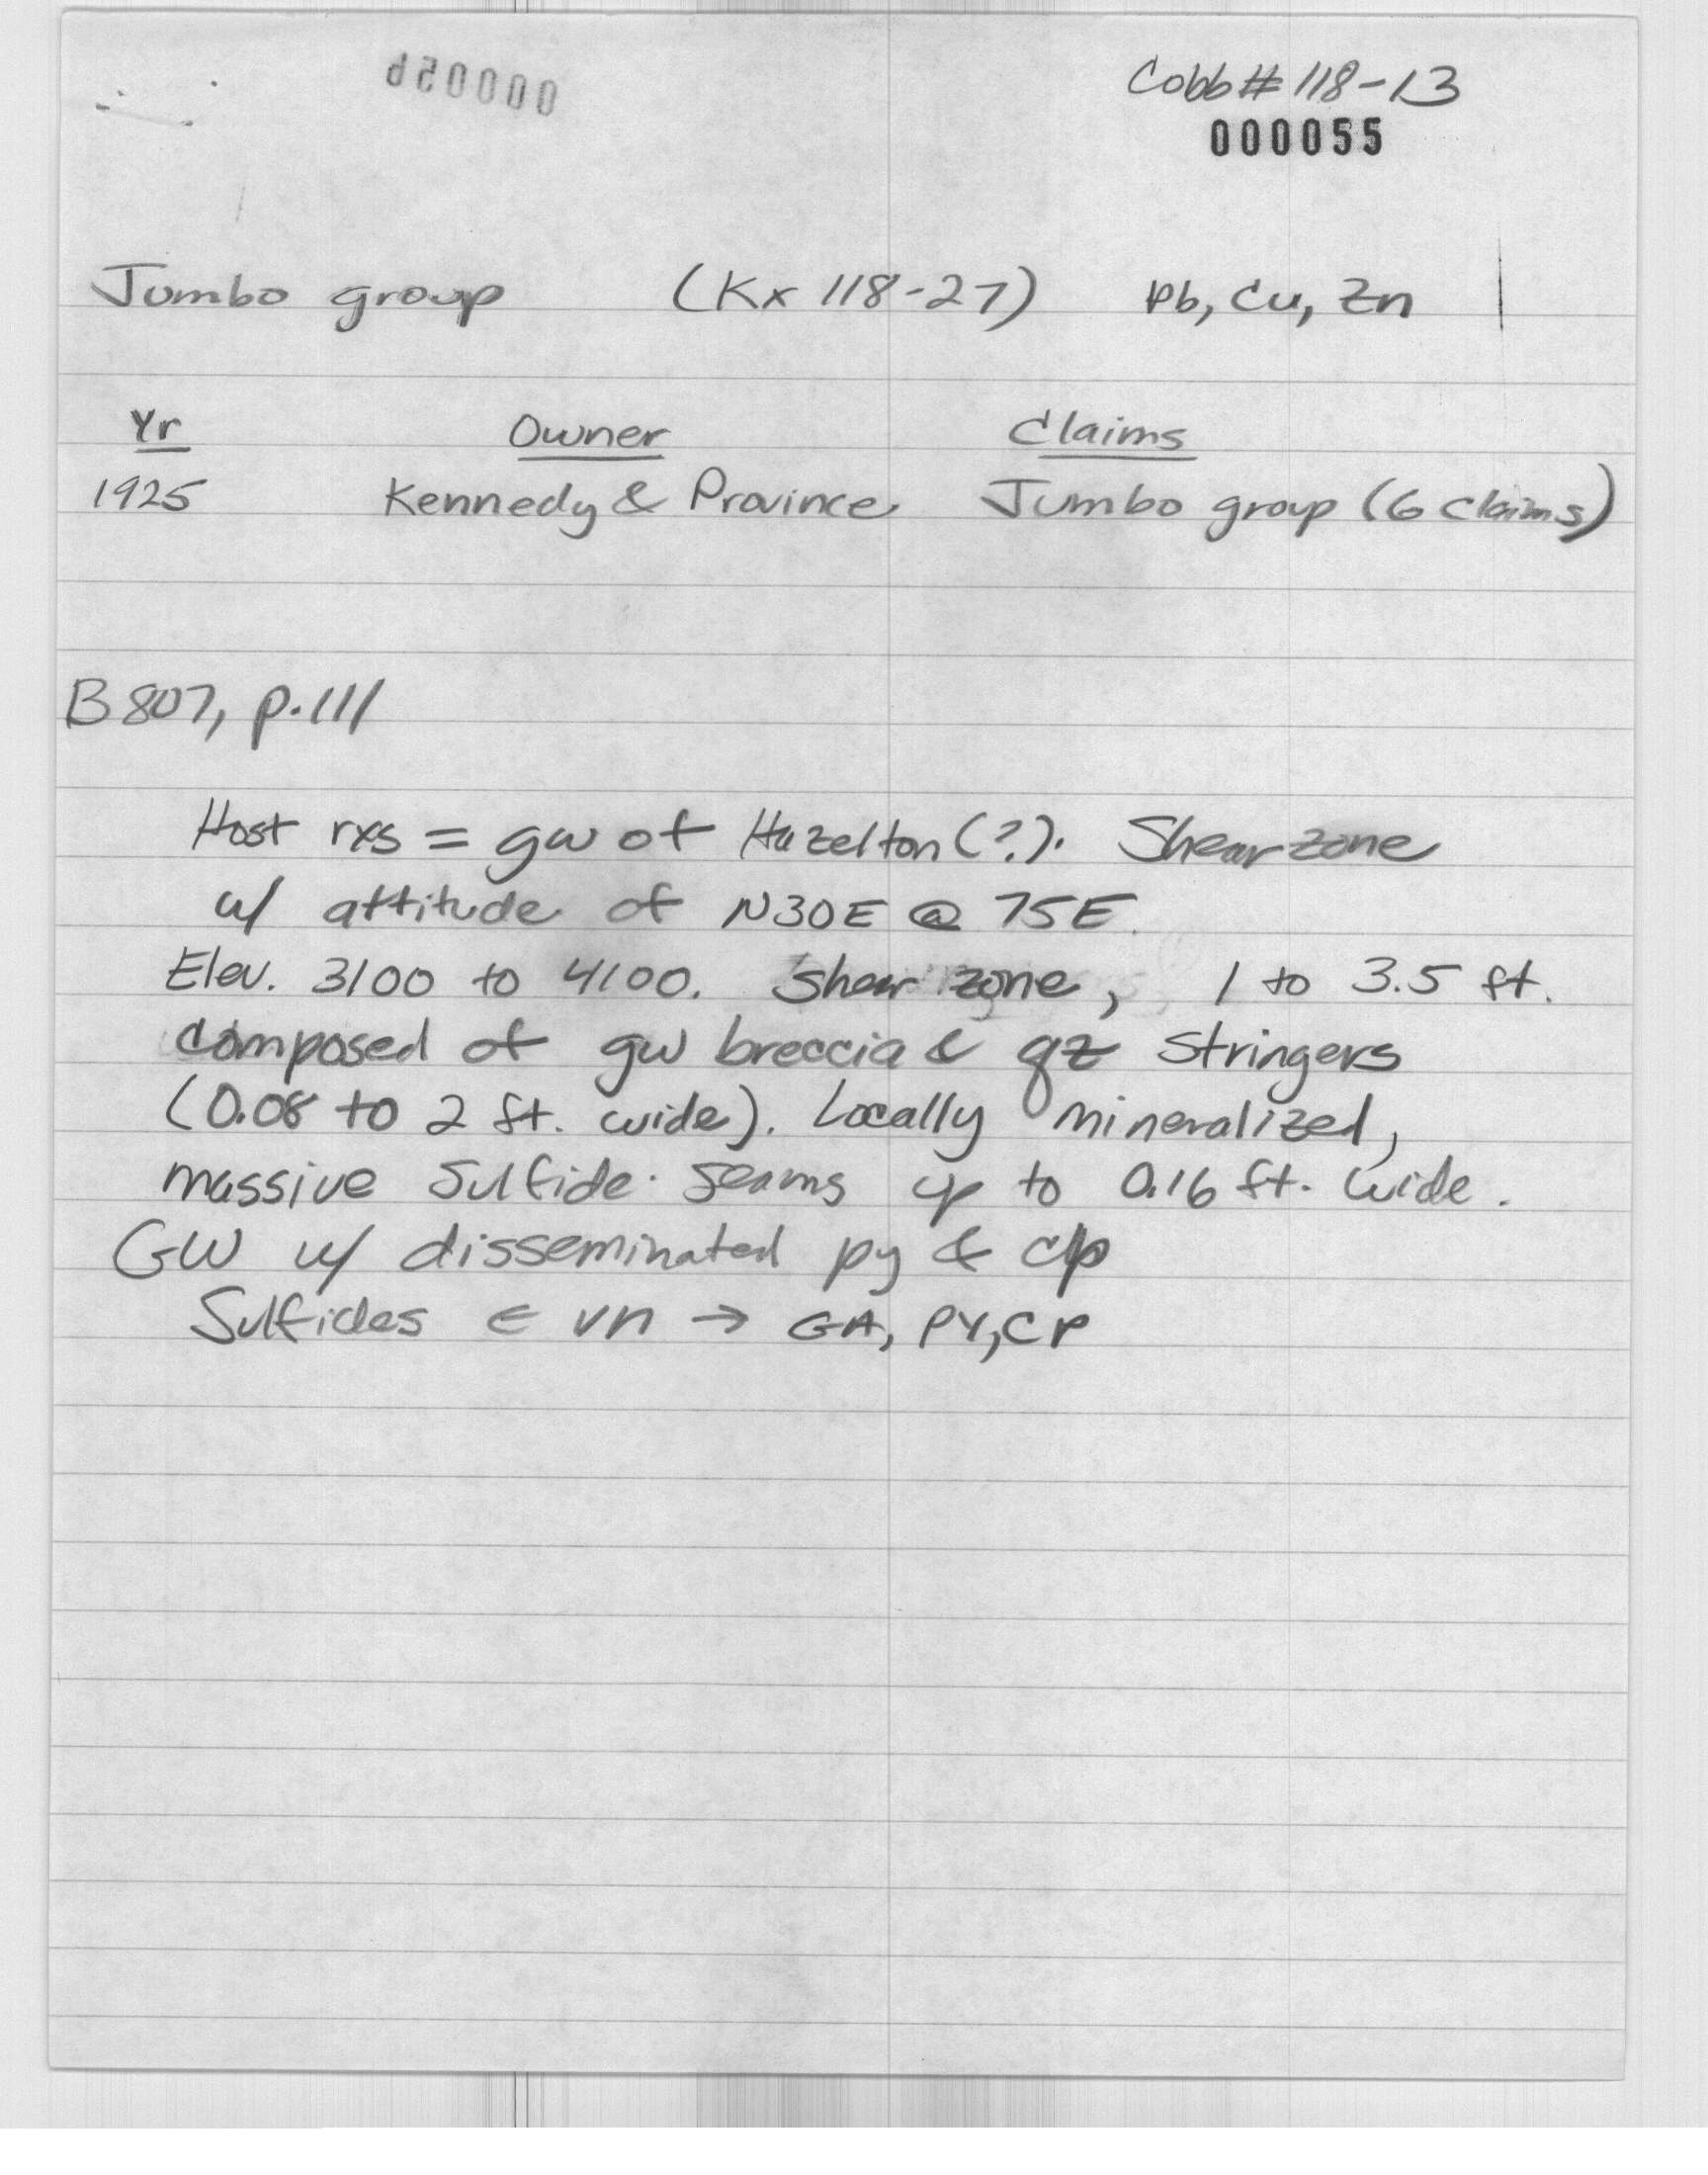 Cobb # 118-13
000055
Jumbo group (Kx 118-27) Pb, Cu, Zn
Yr Owner Claims
1925 Kennedy & Province Jumbo group (6 claims)
B 807, p. 111
Host rxs = gw of Hazelton (?). Shear zone
w/ attitude of N30E @ 75E.
Elev. 3100 to 4100. Shear zone, 1 to 3.5 ft.
composed of gw breccia & qz stringers
(0.08 to 2 ft. wide). Locally mineralized,
massive sulfide seams up to 0.16 ft. wide.
GW w/ disseminated py & cp
Sulfides ∈ vn → GA, PY, CP